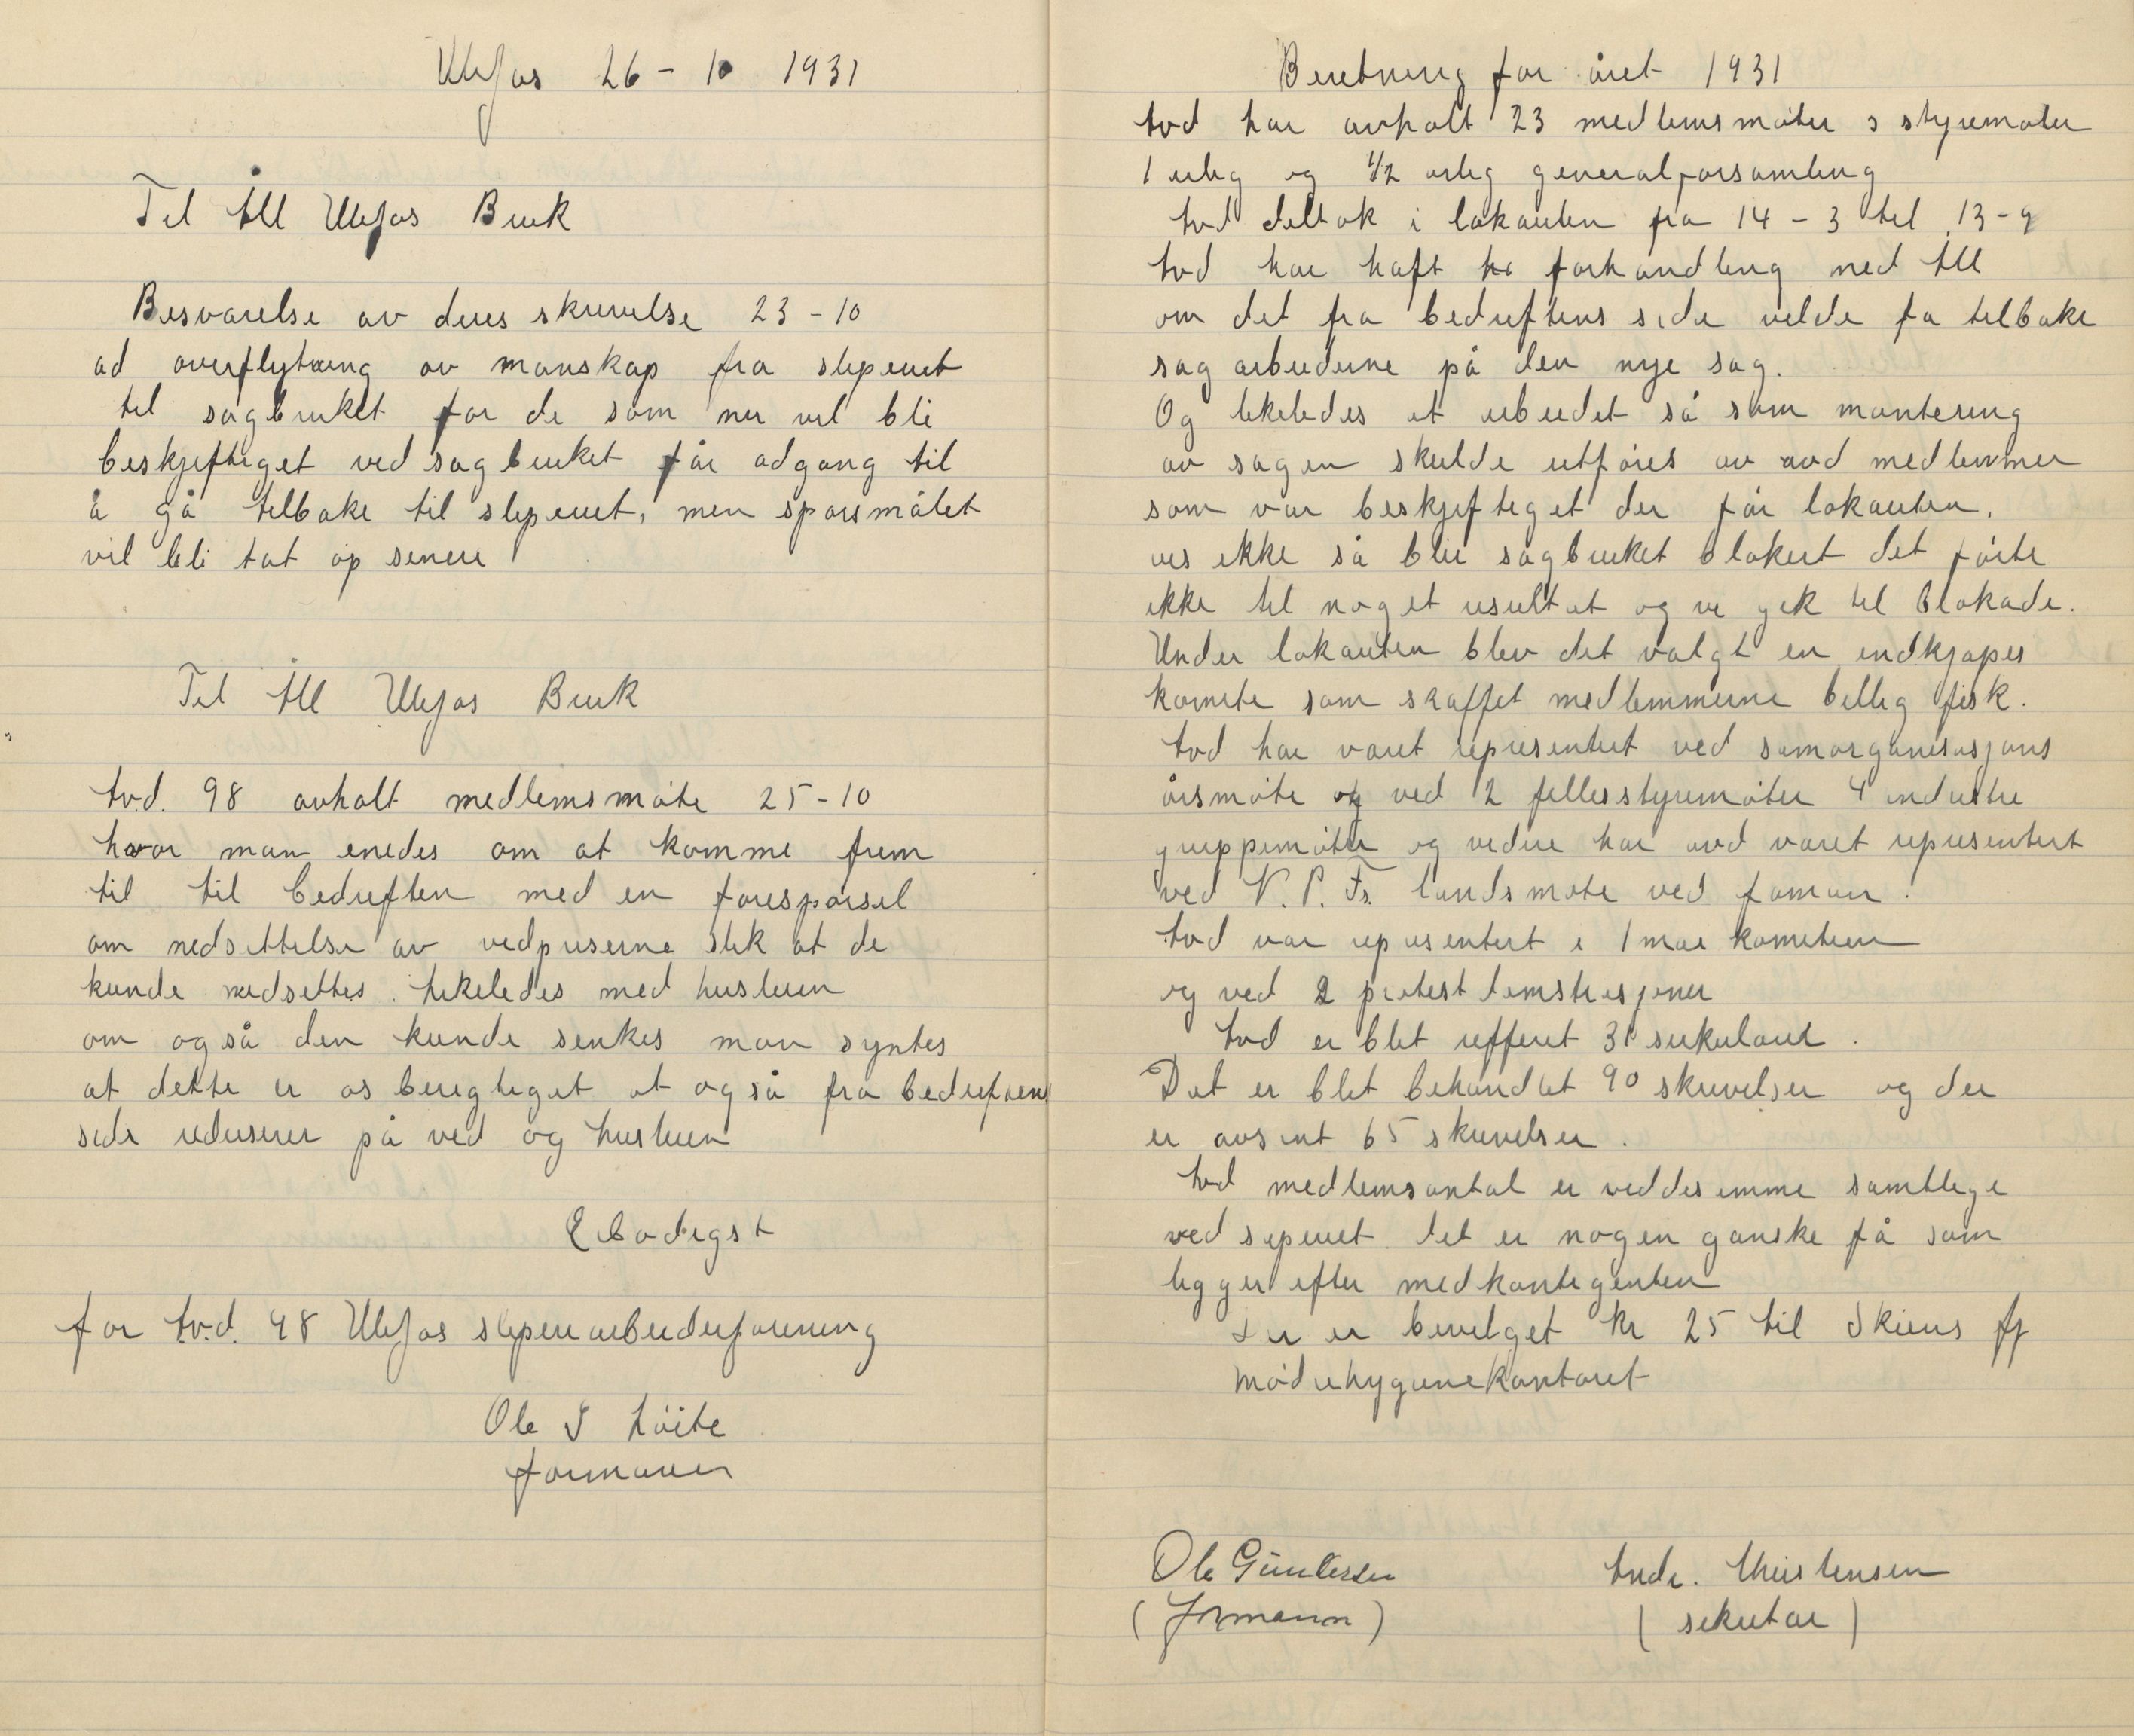 Ulefos 26 - 10 1931
Til A/l Ulefos Bruk
Besvarelse av deres skrivelse 23 - 10
ad overflytning av manskap fra sliperiet
til sagbruket for de som nu vil bli
beskjeftiget ved sagbruket før adgang til
å gå tilbake til sliperiet, men spørsmålet
vil bli tat op senere
Til A/l Ulefos Bruk
Avd. 98 avholt medlemsmøte 25 - 10
hvor man enedes om at komme frem
til til bedriften med en forespørsel
om nedsettelse av vedpriserne slik at de
kunde nedsettes. Likeledes med husleien
om også den kunde senkes man syntes
at dette er os beregtiget at også fra bedriftens
side reduserer på ved og husleien
Erbødigst
for Avd. 98 Ulefos sliperiarbeiderforening
Ole
formann
Beretning for året 1931
Avd har avholt 23 medlemsmøter 3 styremøter
1 årlig og 1/2 årlig generalforsamling
Avd deltok i lokauten fra 14 - 3 til 13 - 9
Avd har haft forhandling med A/l
om det fra bedriftens side vilde ta tilbake
sag arbeiderne på den nye sag.
Og likeledes at arbeidet så som montering
av sagen skulde utføres av avd medlemmer
som var beskjeftiget der før lokauten.
vis ikke så blir sagbruket blokert det førte
ikke til noget resultat og vi gik til blokade.
Under lokauten blev det valgt en indkjøpes
komite som skaffet medlemmerne billig fisk.
Avd har været representert ved samorganisasjons
årsmøte og ved 2 fellesstyremøter 4 industri
gruppemøter og videre har avd været representert
ved N. P. Fs. landsmøte ved foman.
Avd var representert i 1 mai komiteen
og ved 2 protest demstrasjoner
Avd er blet refferet 31 sirkulærer.
Det er blet behandlet 90 skrivelser og der
er avsent 65 skrivelser.
Avd medlemsantal er veddesimme samtlige
ved sliperiet det er nogen ganske få som
ligger efter med kontigenten
Der er bevilget kr 25 til Skiens
mødrehygienekontoret
Ole Gundersen
(formann)
Andr. Christensen
(sekretær)